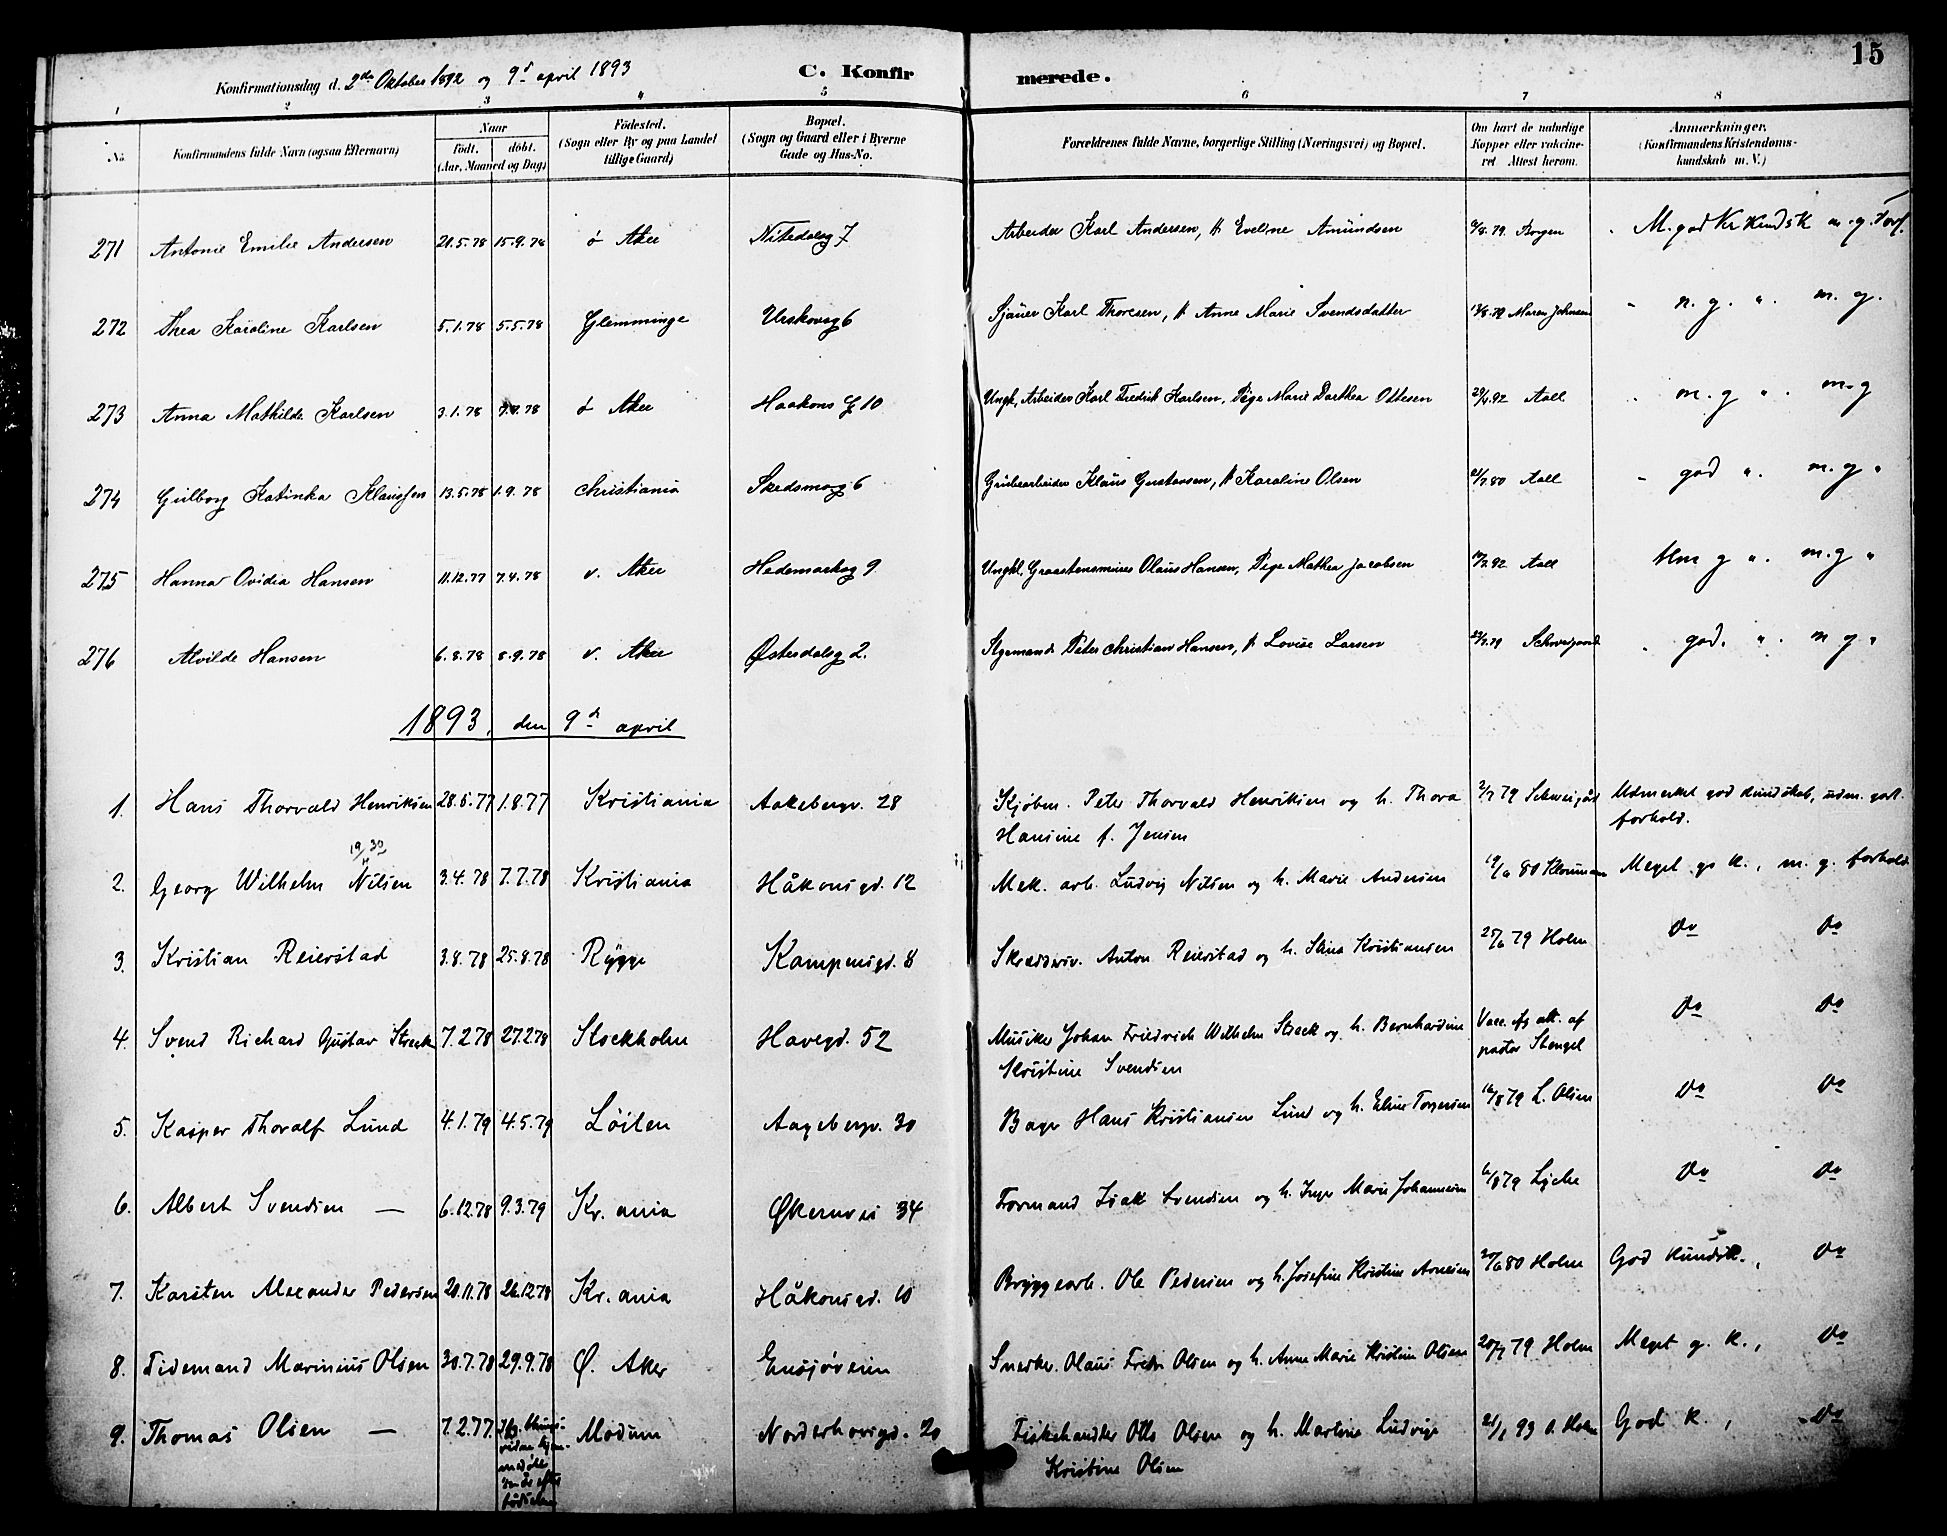 15
Konfirmationsdag d. 2de Oktober 1892 og 9d april 1893 C. Konfirmerede.
1 2 3 4 5 6 7 8
No. Konfirmandens fulde Navn (ogsaa Efternavn) Naar født. døbt. (Aar, Maaned og Dag) Fødested. (Sogn eller By og paa Landet tillige Gaard) Bopæl. (Sogn og Gaard eller i Byerne Gade og Hus-No. Forældrenes fulde Navne, borgerlige Stilling (Næringsvei) og Bopæl. Om havt de naturlige Kopper eller vakcineret Attest herom. Anmærkninger. (Konfirmandens Kristendomskundskab m. V.)
271 Antonie Emilie Andersen 21.5.78 15.9.78 ø Aker Nitedalsg 7 Arbeider Karl Andersen, h Eveline Amundsen /8.79. Borgen M. god Kr Kundsk m. g. Forh.
272 Thea Karoline Karlsen 5.1.78 5.5.78 Glemminge Urskovsg 6 Sjauer Karl Thoresen, h Anne Marie Svendsdatter Maren Johnsen m. g. " m. g.
273 Anna Mathilde Karlsen 3.1.78 78 ø Aker Haakons G 10 Ungk. Arbeider Karl Fredrik Karlsen, Pige Marie Dorthea Ottesen 92 Aall m. g " m. g
274 Gulborg Katinka Klaussen 13.5.78 1.9.78 Christiania Skedsmog 6 Grubearbeider Klaus Gustavsen, h Karoline Olsen 80 Aall god " m. g "
275 Hanna Ovidia Hansen 11.12.77 7.4.78 v. Aker Hedemarksg 9 Ungkl, Olaus Hansen, Pige Mathea Jacobsen 92 Aall m g " m. g "
276 Alvilde Hansen 6.8.78 8.9.78 v. Aker Østerdalsg 2. Styrmand Peter Christian Hansen, h Lovise Larsen 79 Schweigaard god. " m g "
1893, den 9d april
1. Hans Thorvald Henriksen 28.5.77 1.8.77 Kristiania Aakebergv. 28 Kjøbm. Peter Thorvald Henriksen og h. Thora 2/7 79 Schweigård Udmerket god kundskab, udm. godt
Hansine f. Jensen forhold.
19/11 30
2. Georg Wilhelm Nilsen 3.4.78 7.7.78 Kristiania Håkonsgd. 12 Mek. arb. Ludvig Nilsen og h. Marie Andersen 19/6 80 Meget go k., m. g. forhold
3. Kristian Reierstad 3.8.78 25.8.78 Rygge Kampensgd. 8 Skrædersv. Anton Reierstad og h. Stina Kristiansen 25/6 79 Holm Do Do
4. Svend Richard Gustav Streck 7.2.78 27.2.78 Stockholm Havegd. 52 Musiker Johan Friedrich Wilhelm Streck og h. Bernhardine Vacc. afg. att. af Do Do
Kristine Svendsen pastor Stengel
5. Kasper Thoralf Lund 4.1.79 4.5.79 Løiten Aagebergv. 30 Bager Hans Kristiansen Lund og h. Eline Torgersen 16/8 79 L. Olsen Do Do
6. Albert Svendsen — 6.12.78 9.3.79 Kr.ania Økernvei 34 Formand Isak Svendsen og h. Inger Marie Johannesen /8 79 Lyche Do Do
7. Karsten Alexander Pedersen 20.11.78 26.12.78 Kr.ania Håkonsgd. 10 Bryggearb. Ole Pedersen og h. Josefine Kristine Arnesen 80 Holm God kundsk., Do
8. Tidemand Marinius Olsen 30.7.78 29.9.78 Ø. Aker Ensjøveien Snedker Olaus Fredr Olsen og h. Anne Marie Kristine Olsen 79 Holm Meget g. k., Do
9. Thomas Olsen — 7.2.77 Modum Norderhovsgd. 20 Fiskehandler Otto Olsen og h. Martine Ludvige 21/1 93 O. Holm God k., Do
Kristine Olsen